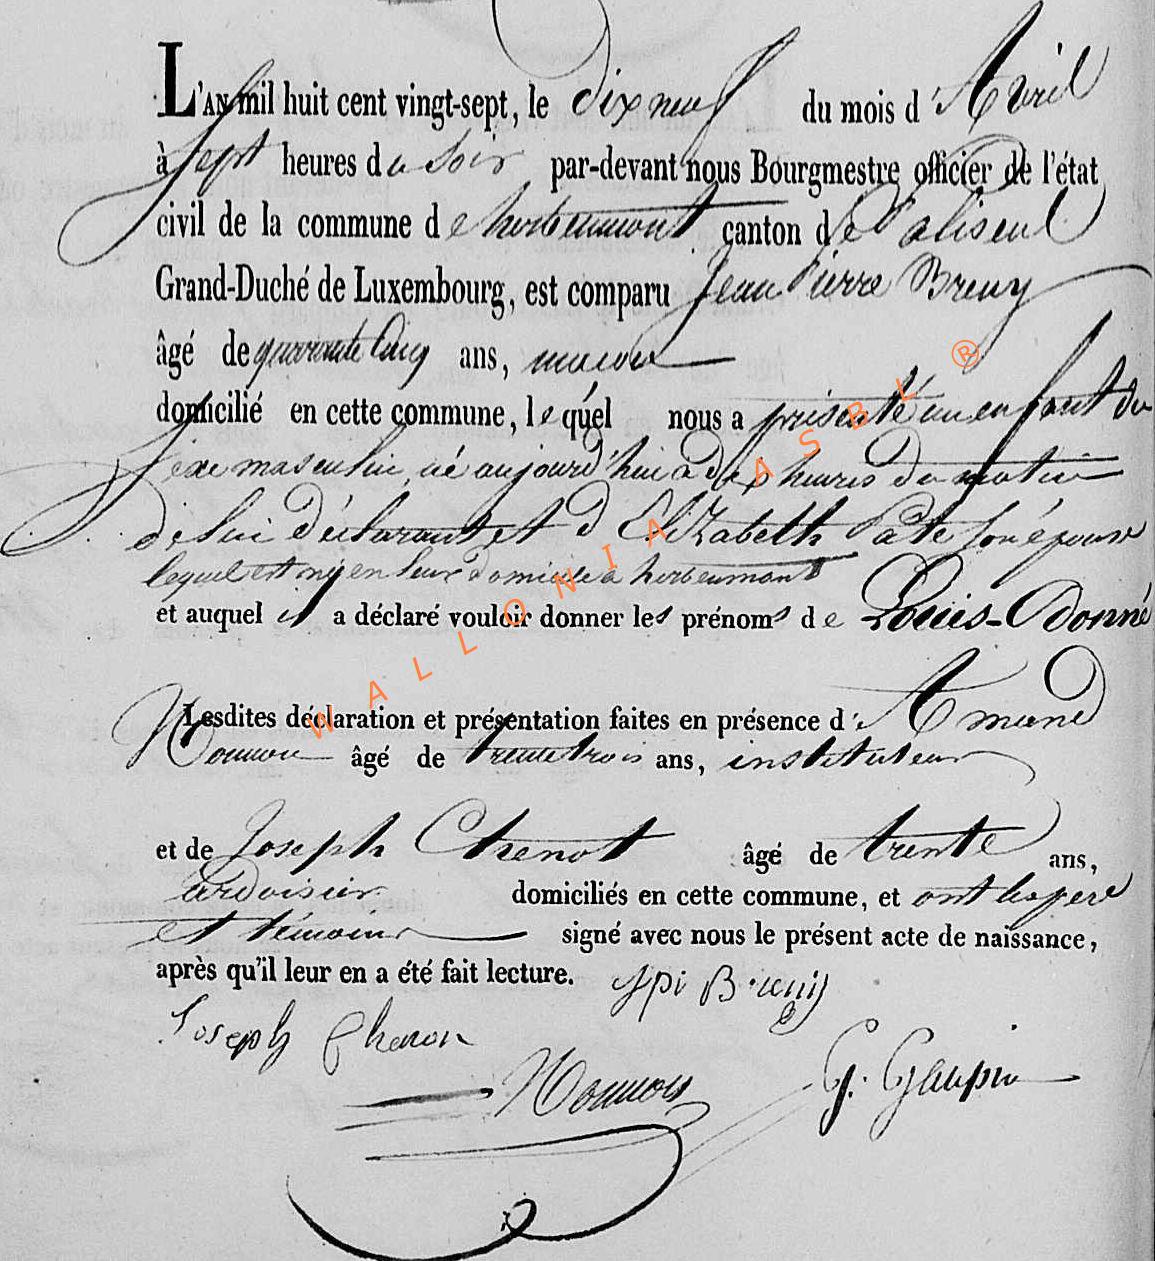 L'AN mil huit cent vingt-sept, le dix neuf du mois d'Avril
à sept heures du soir par-devant nous Bourgmestre officier de l'état
civil de la commune de herbeumont canton de Paliseul
Grand-Duché de Luxembourg, est comparu Jean Pierre
âgé de quarante Cinq ans,
domicilié en cette commune, lequel nous a présenté un enfant du
sexe masculin, né aujourd'hui à heures du matin
de lui déclarant et d'Elizabeth son épouse
lequel est né en leur domicile a herbeumont
et auquel il a déclaré vouloir donner les prénoms de Louis-Odonné
Lesdites déclaration et présentation faites en présence d'Amand
âgé de trente trois ans, instituteur
et de Joseph Chenot âgé de trente ans,
ardoisier domiciliés en cette commune, et ont les pere
et témoins signé avec nous le présent acte de naissance,
après qu'il leur en a été fait lecture.
Joseph
G.
WALLONIA ASBL ®